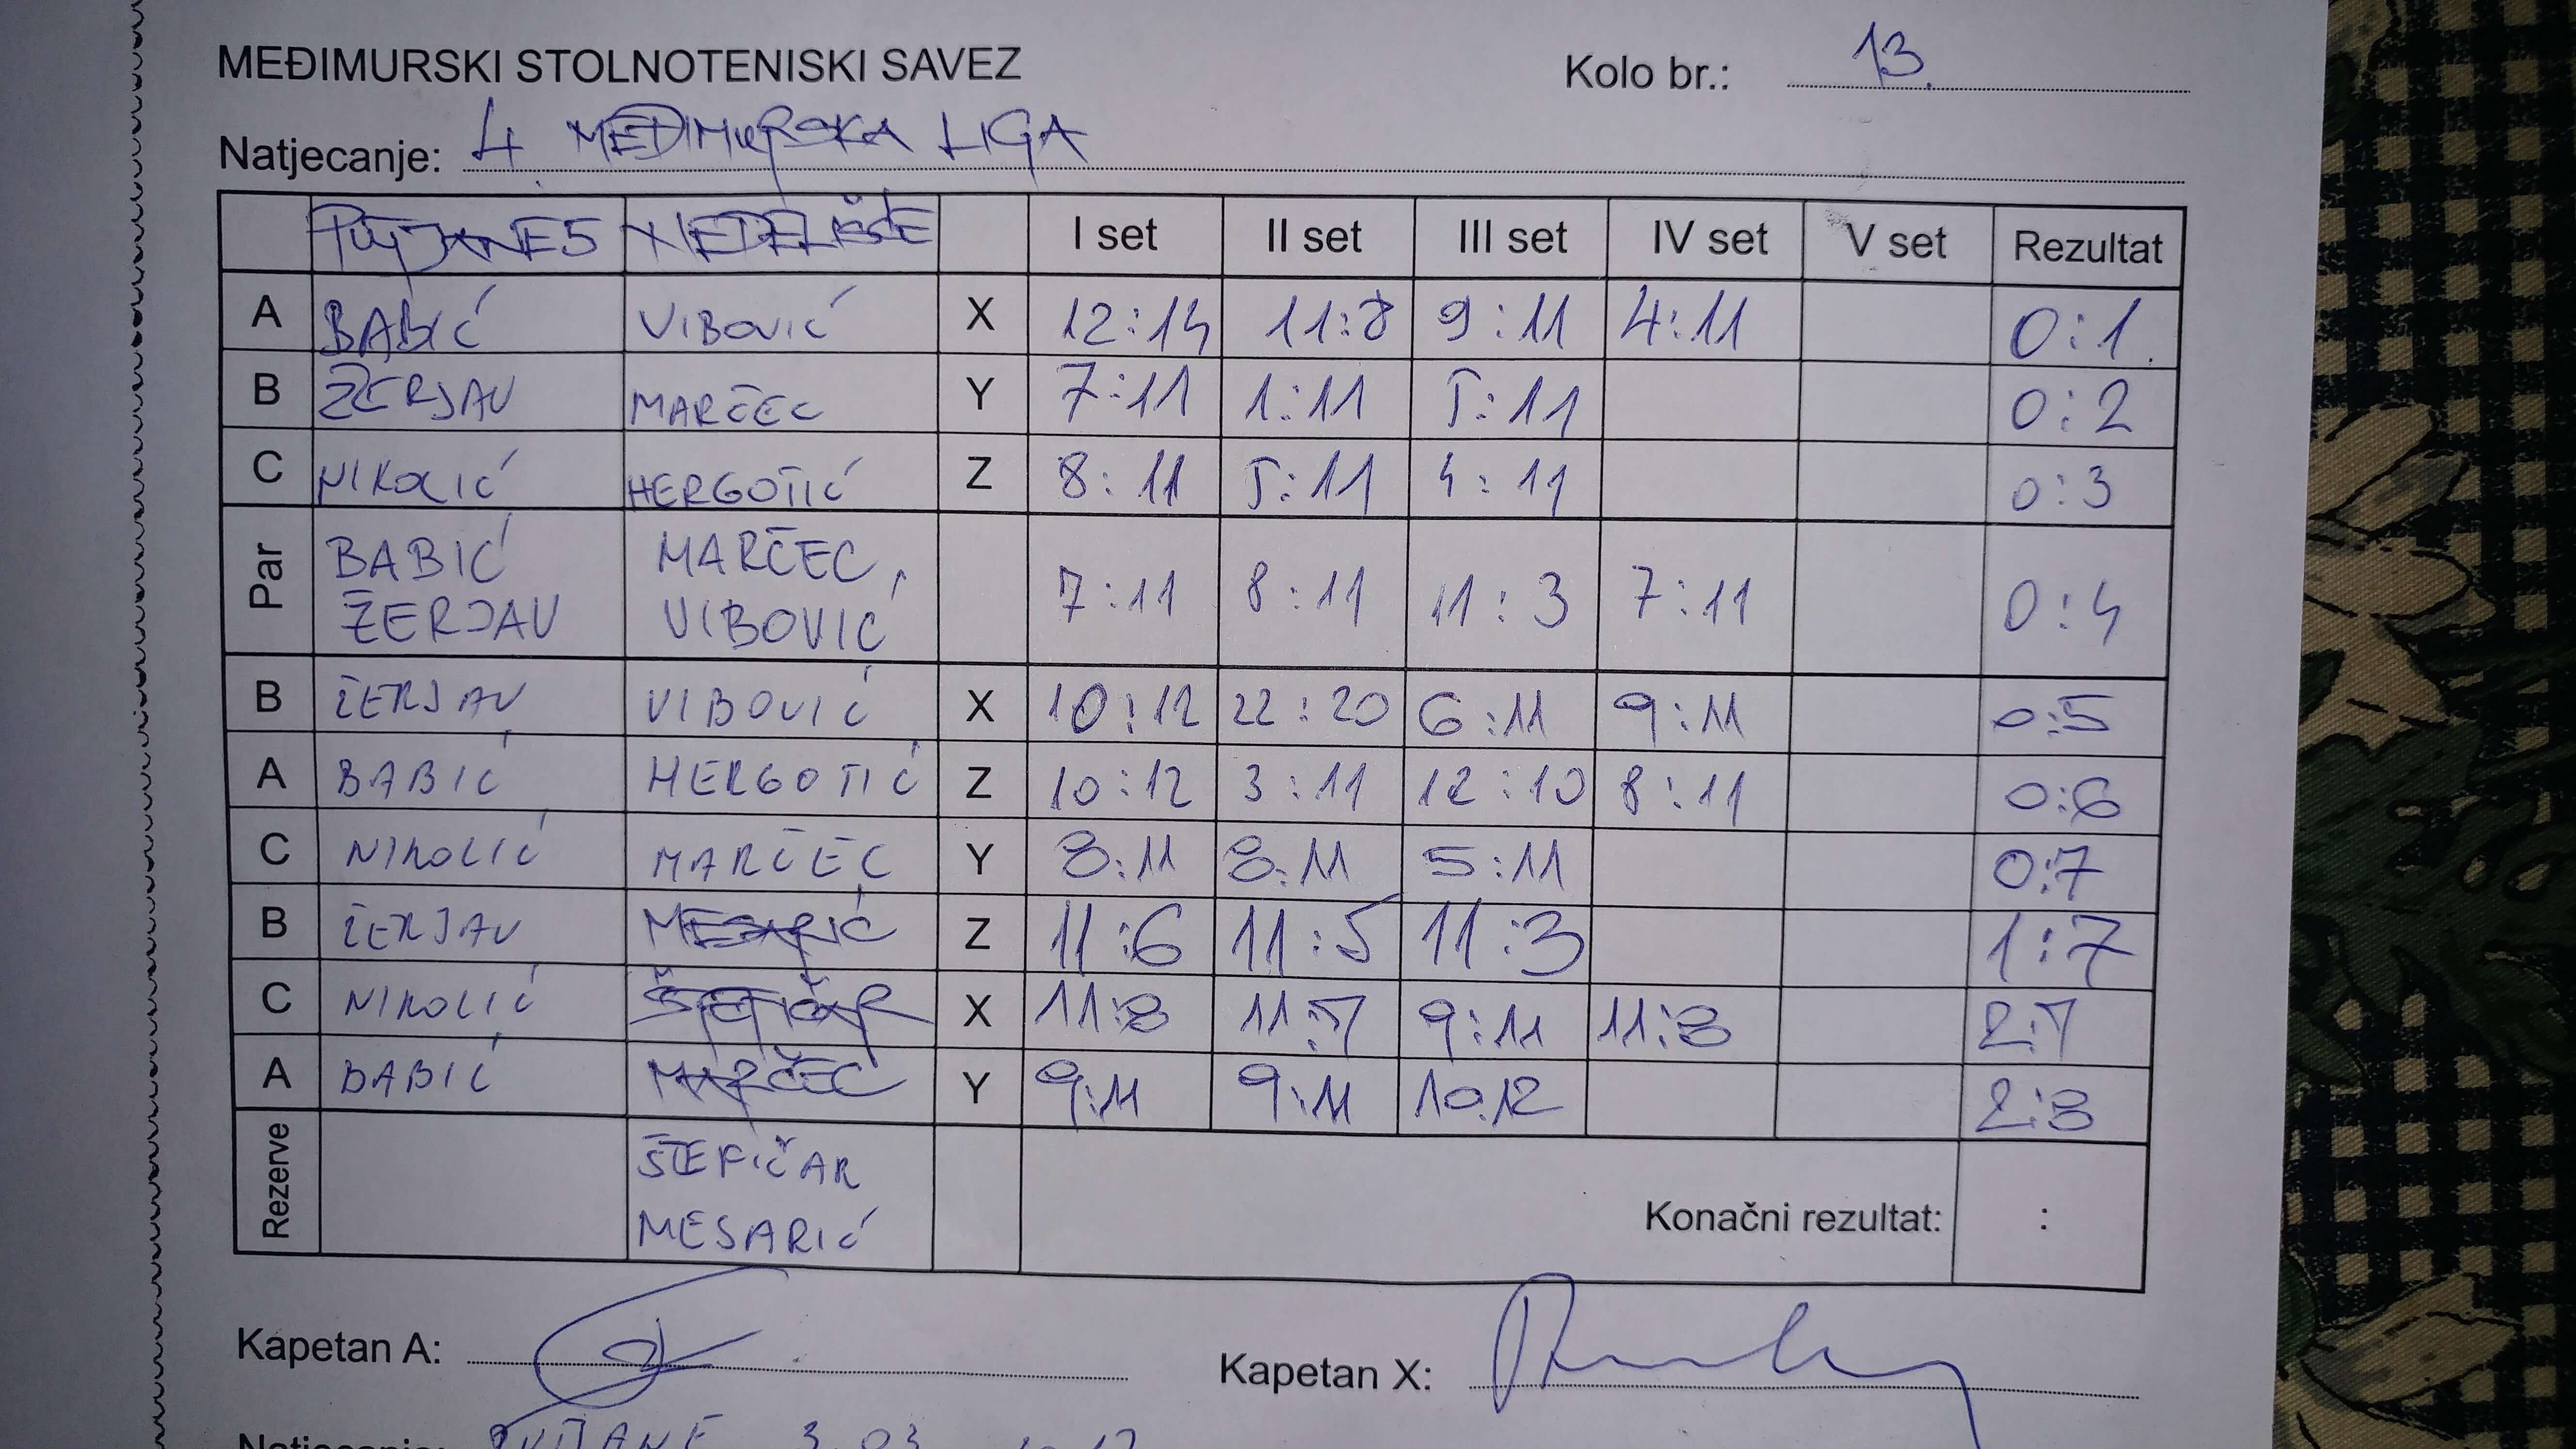 MEĐIMURSKI STOLNOTENISKI SAVEZ Kolo br.: 13.
Natjecanje: 4 MEĐIMURSKA LIGA
PUŠĆANE 5 NEDELIŠĆE I set II set III set IV set V set Rezultat
A BABIĆ VIBOVIĆ X 12:14 11:8 9:11 4:11 0:1
B ŽERJAV MARČEC Y 7:11 1:11 5:11 0:2
C NIKOLIĆ HERGOTIĆ Z 8:11 5:11 4:11 0:3
Par BABIĆ MARČEC, 7:11 8:11 11:3 7:11 0:4
ŽERJAV VIBOVIĆ
B ŽERJAV VIBOVIĆ X 10:12 22:20 6:11 9:11 0:5
A BABIĆ HERGOTIĆ Z 10:12 3:11 12:10 8:11 0:6
C NIKOLIĆ MARČEC Y 8:11 8:11 5:11 0:7
B ŽERJAV MESARIĆ Z 11:6 11:5 11:3 1:7
C NIKOLIĆ ŠTEFIČAR X 11:8 11:7 9:11 11:8 2:7
A BABIĆ MARČEC Y 9:11 9:11 10:12 2:8
Rezerve ŠTEFIČAR
MESARIĆ
Konačni rezultat: :
Kapetan A: Kapetan X:
Natjecanje: 3.03.